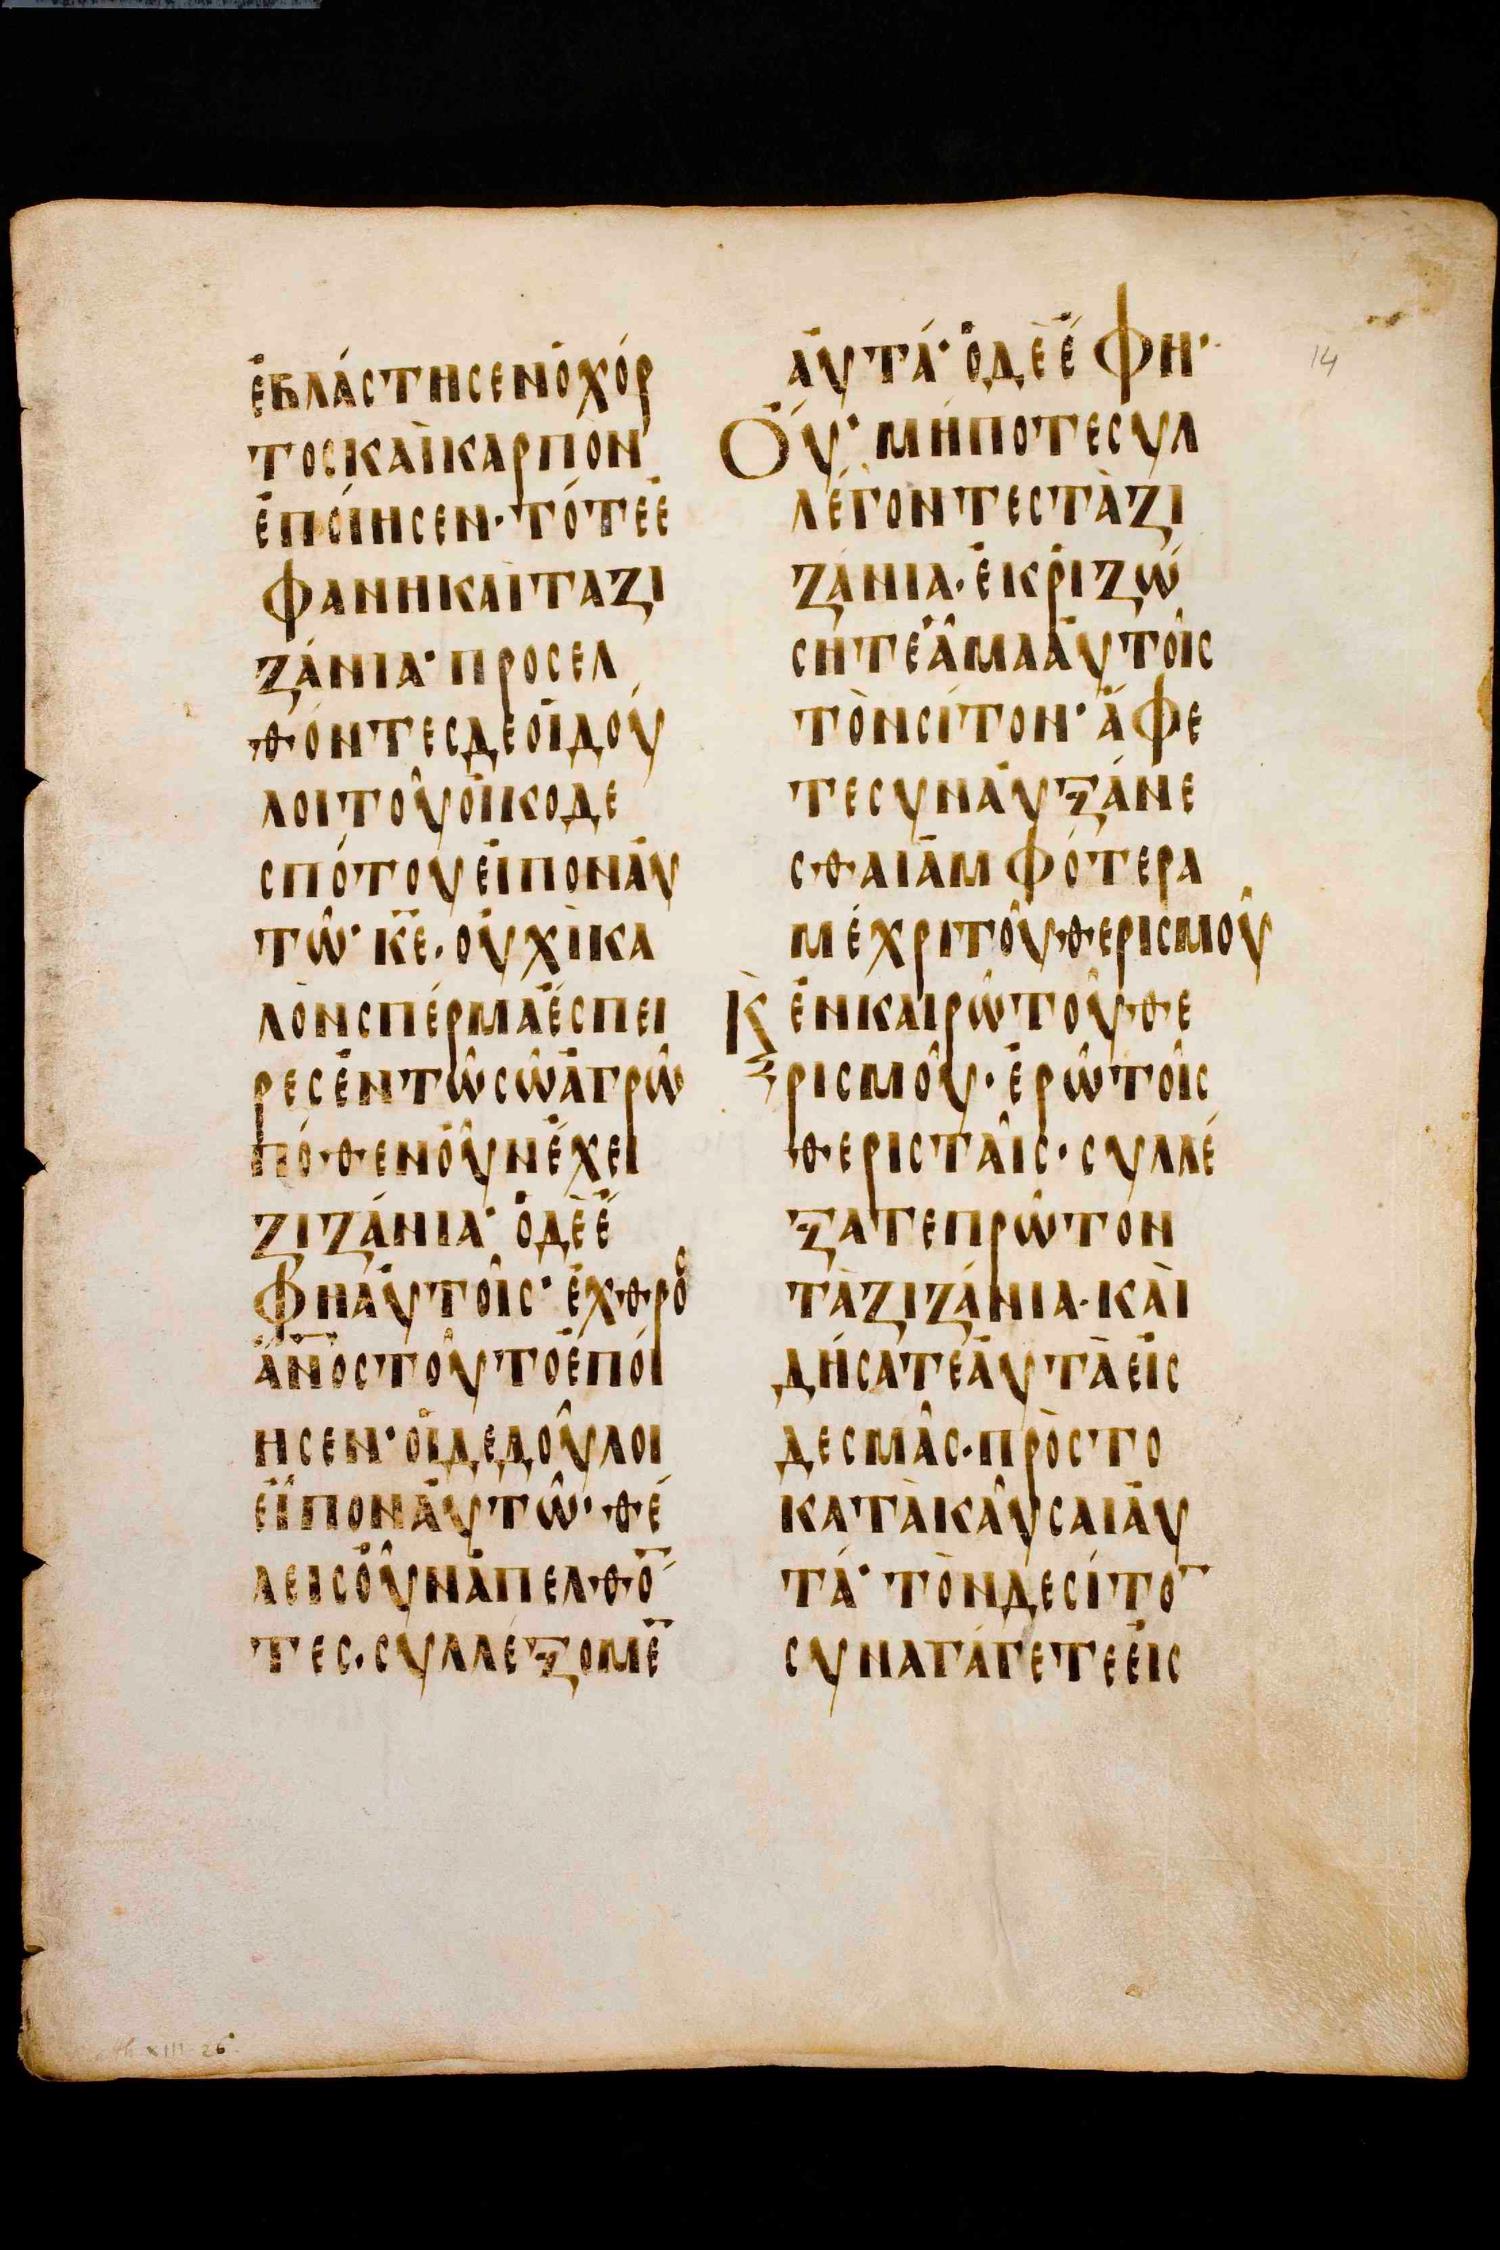 ἐβλάστησενὁχόρ
τοςκαὶκαρπὸν
ἐποίησεν· τότεἐ
φανηκαὶταζι
ζάνια· προσελ
θόντεςδεοἱδού
λοιτοῦοἰκοδε
σπότουεἶπονἀυ
τῶ· κ̅ε̅· οὐχὶκα
λὸνσπέρμαἔσπει
ρεςἐντῶσῶἀγρῶ
πόθενοὖνἔχει
ζιζάνια· ὁδὲἔ
φηἀυτοῖς· ἐχθρὸς
ἄ̅ν̅ο̅ς̅τοῦτοἐποί
ησεν· οἱδεδοῦλοι
εἶπονἀυτῶ· θέ
λειςοὖνἀπελθό̅
τες· συλλέξομε̅
ἀυτά· ὁδὲἔφη·
Οὔ· μήποτεσυλ
λέγοντεςτὰζι
ζάνια· ἐκριζώ
σητεἅμαἀυτοῖς
τὸνσίτον· ἄφε
τεσυναυξάνε
σθαιἀμφότερα
μέχριτοῦθερισμοῦ
Κὲνκαιρῶτοῦθε
ρισμοῦ· ἐρῶτοῖς
θερισταῖς· συλλέ
ξατεπρῶτον
τὰζιζάνια· καὶ
δήσατεἀυτὰεἰς
δεσμὰς· πρὸςτο
κατὰκαῦσαιἀυ
τά· τὸνδεσίτο̅
συναγάγετεεἰς
14
XIII 26